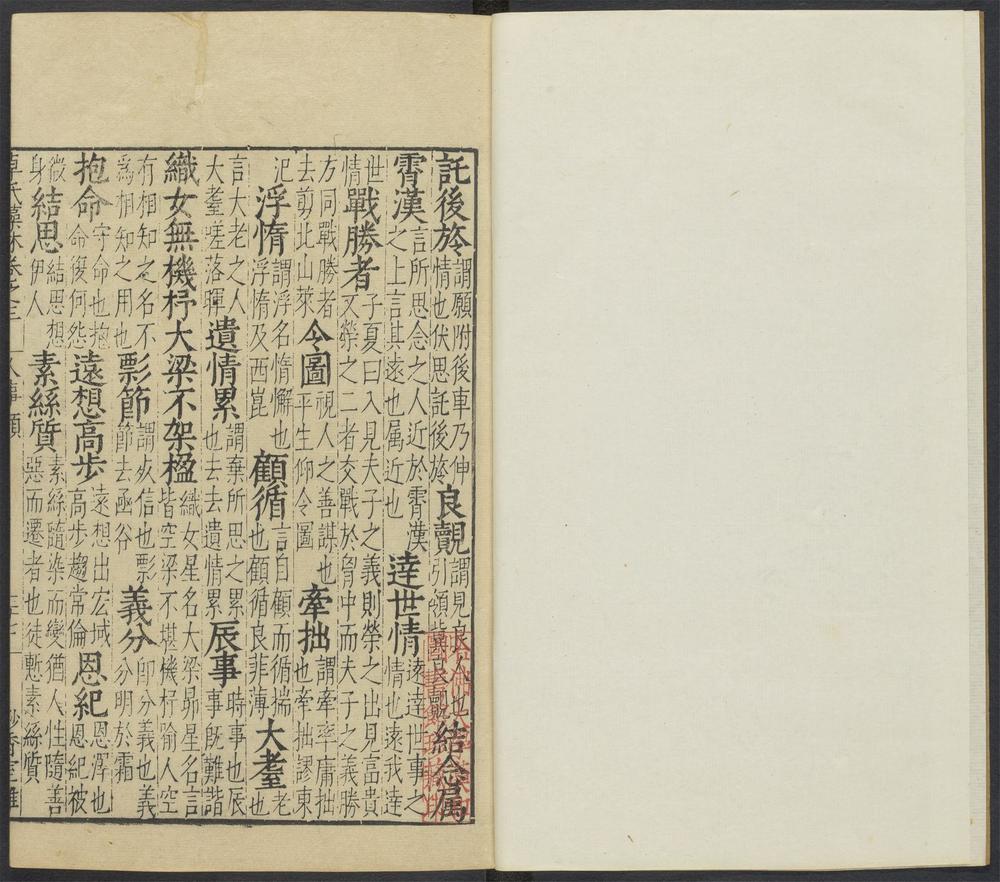 託後於謂願附後車乃伸情也伏思託後於良覿謂見良人也引領冀良覿結念屬
霄漢言所思念之人近於霄漢之上言其遠也屬近也達世情遠達世事之情也遠我達
世情戰勝者子夏曰入見夫子之義則榮之出見富貴又榮之二者交戰於胷中而夫子之義勝
方同戰勝者去剪北山萊令圖視人之善謀也平生仰令圖牽拙謂牽率庸拙也牽拙謬東
汜浮惰謂浮名惰懈也浮惰及西崑顧循言自顧而循揣也顧循良菲薄大耋老也
言大老之人大耋嗟落暉遺情累謂棄所思之累也去去遺情累辰事時事也辰事旣難諧
織女無機杼大梁不架楹織女星名大梁昴星名言皆空梁不堪機杼喻人空
有相知之名不爲相知之用也彯節謂成信也彯節去函谷義分卽分義也義分明於霜
抱命守命也抱命復何怨遠想高步遠想出宏域高步趨常倫恩紀恩澤也恩紀被
微身結思結思想伊人素絲質素絲隨染而變猶人性隨善惡而遷者也徒慙素絲質
卓氏藻林卷之三 人事類